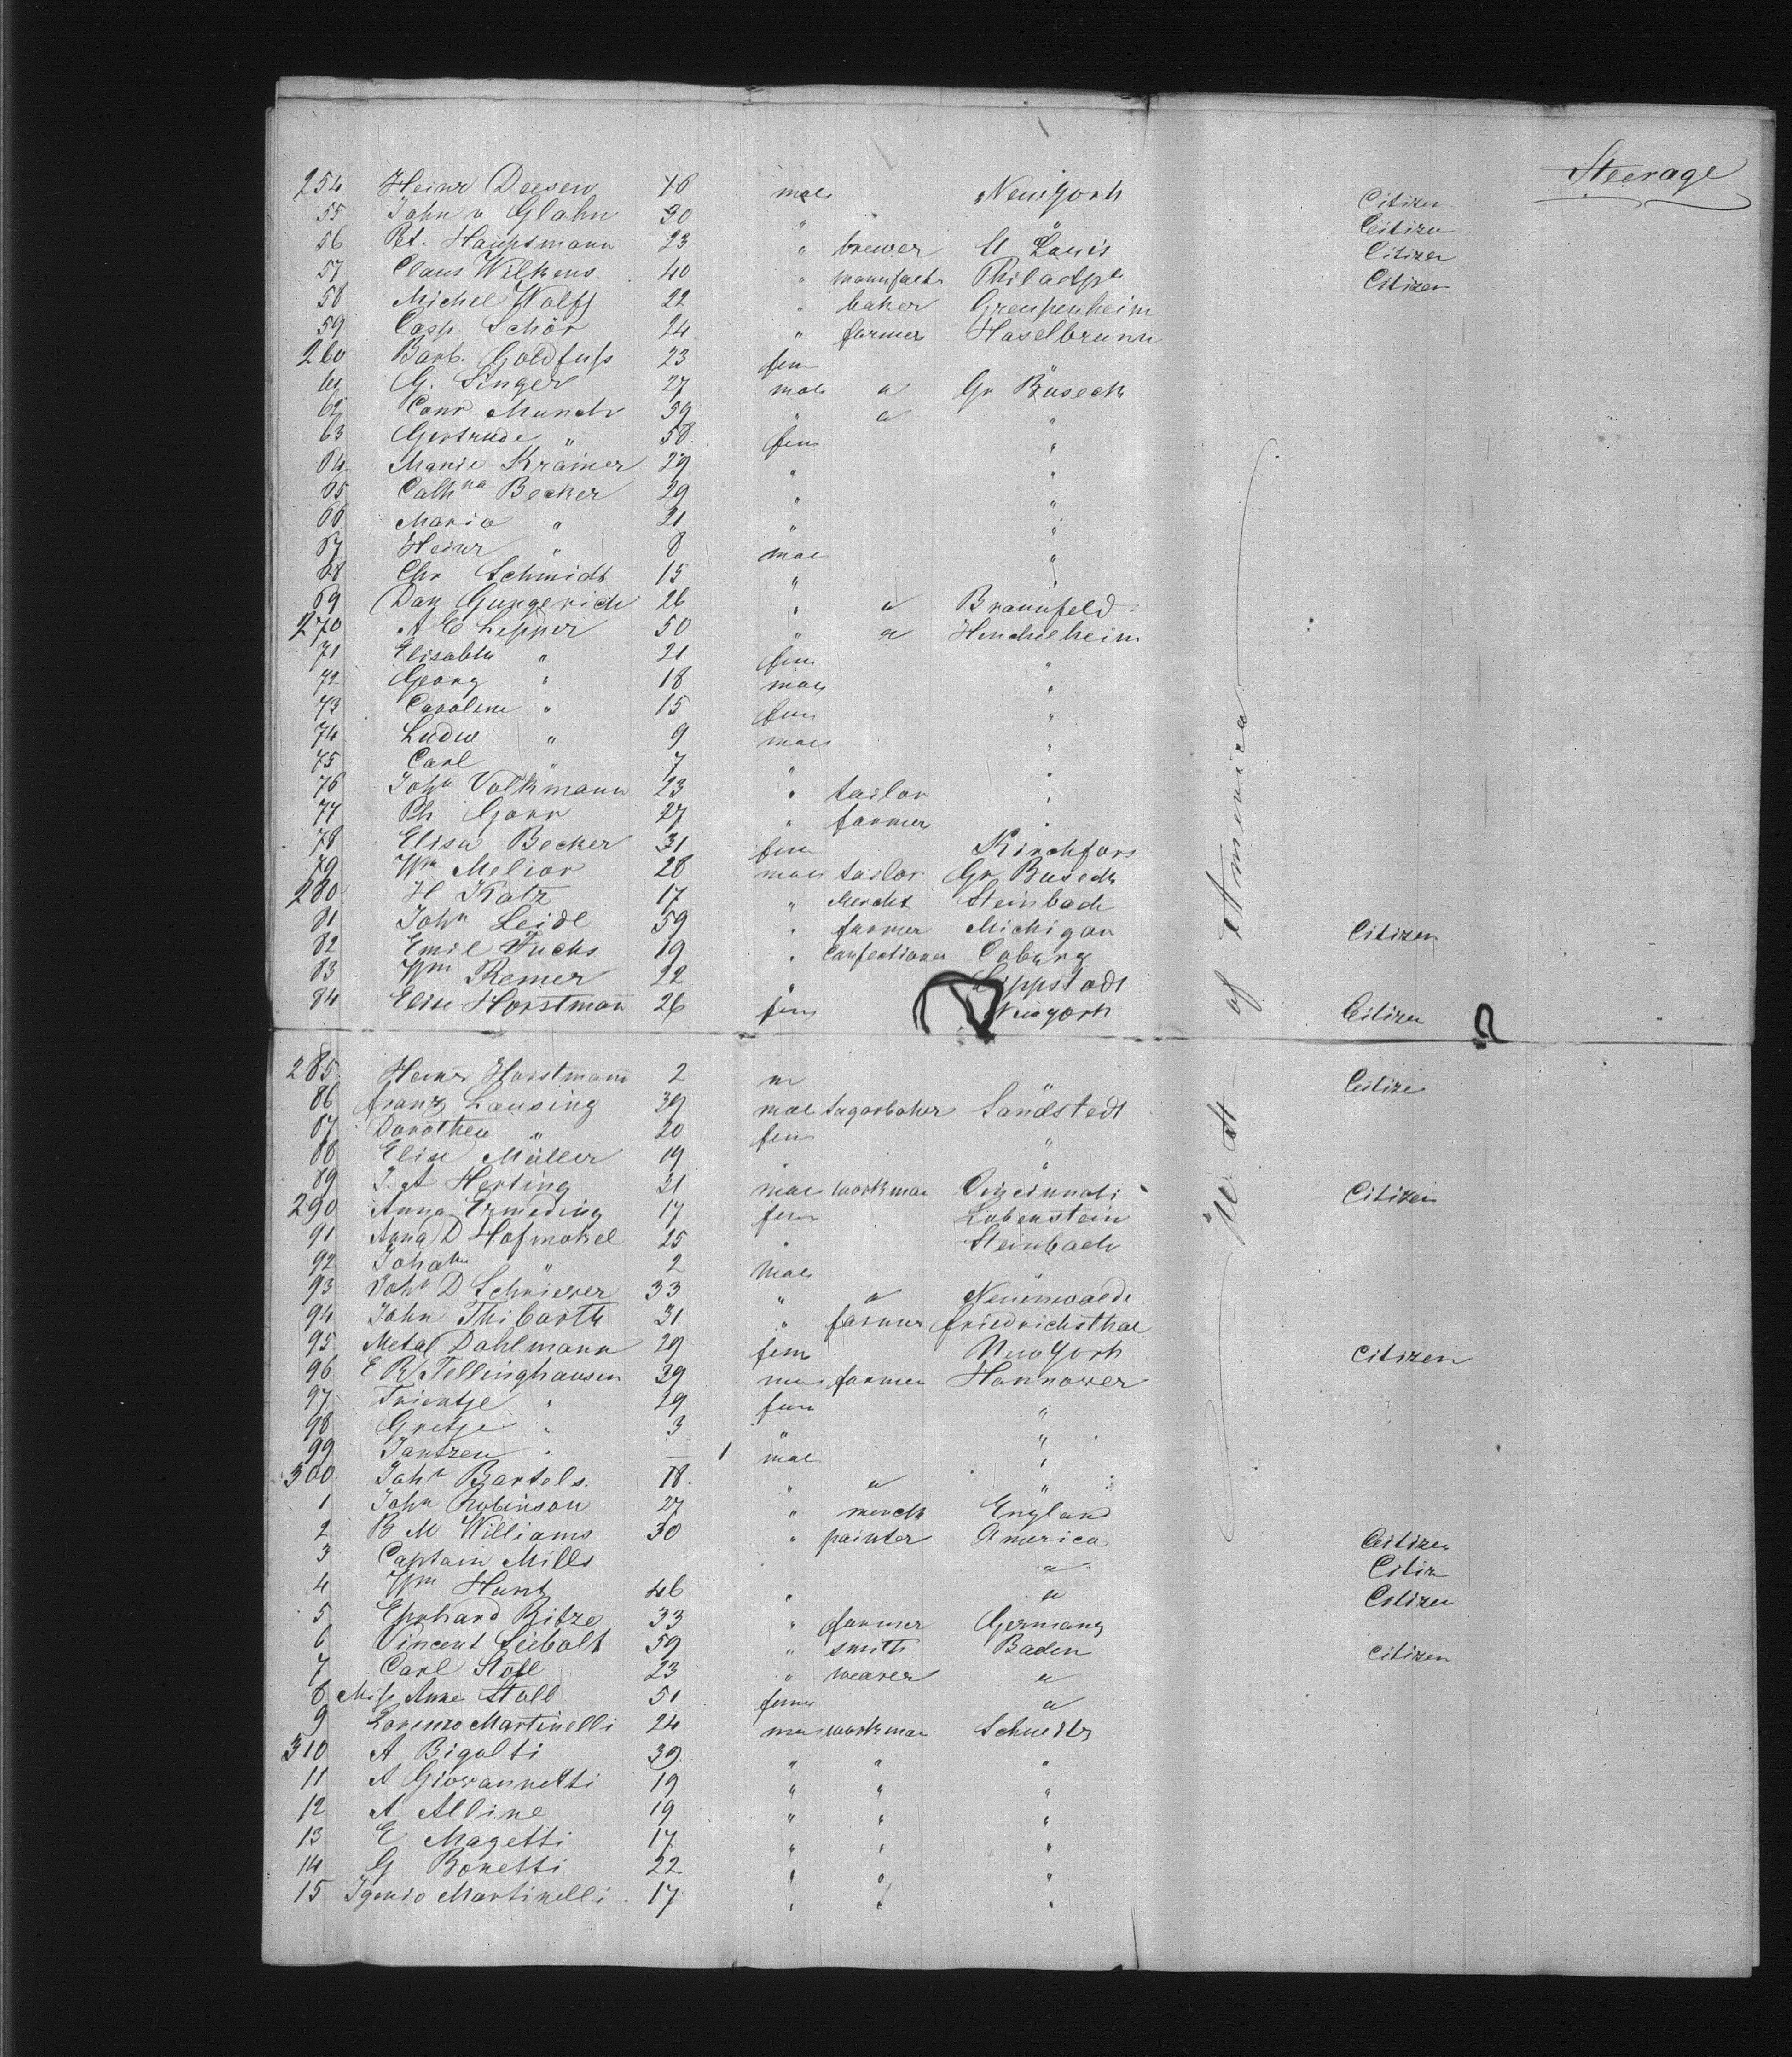 Steerage
254 Heinr Deesen 46 male New York Citizen
55 John v Glahn 30 " " Citizen
56 Pet. Hauptmann 23 " brewer St Louis Citizen
57 Claus Wilkens 40 " manufact Philadlp Citizen
58 Michel Wolff 22 " baker Greupenheim
59 Casp. Schör 24 " farmer Haselbrunn
260 Barb. Goldfuss 23 fem "
61 G. Singer 27 male a Gr Buseck
62 Conr Munch 59 " a "
63 Gertrude " 58 fem "
64 Marie Kramer 29 " "
65 Cathna Becker 29 " "
66 Maria " 21 " "
67 Heinr " 8 male "
68 Chr Schmidt 15 " "
69 Dan Gungerich 26 " a Braunfeld
270 A E Lepper 50 " a Henchelheim
71 Elisabth " 21 fem "
72 Georg " 18 male "
73 Caroline " 15 fem "
74 Ludw " 9 male "
75 Carl " 7 " "
76 John Volkmann 23 " tailor "
77 Ph Gorr 27 " farmer "
78 Elise Becker 31 fem Kirchfors
79 Wm Melior 28 male tailor Gr Buseck
280 H Katz 17 " Mercht Steinbach
81 John Leidl 59 " farmer Michigan Citizen
82 Emil Fuchs 19 " Confectioner Coburg
83 Wm Remer 22 " Lippstadt
84 Elise Horstmann 26 fem New york Citizen
285 Heinr Horstmann 2 m " Citize
86 Franz Lansing 39 male Sugarbaker Sandstedt
87 Dorothea " 20 fem "
88 Elise Müller 19 " "
89 J. A Herting 31 male workman Cincinnati Citizen
290 Anna Ermeding 17 fem Lobenstein
91 Anna D Hofmokel 25 " Steinbach
92 Johann " 2 male "
93 John D Schriever 33 " a Neuenwalde
94 John Thibarth 31 " farmer Friedrichsthal
95 Meta Dahlmann 29 fem New York Citizen
96 E R Tellinghausen 39 male farmer Hannover
97 Trientje " 29 fem "
98 Gretje " 3 " "
99 Jantzen " — 1 male "
300 John Bartels 18 " a "
1 John Robinson 27 " merch England
2 B M Williams 30 " painter America Citizen
3 Captain Mills " a Citiz
4 Wm Hunt 46 " a Citizen
5 Ephrhard Bitze 33 " farmer Germany
6 Vincent Seibolt 59 " smith Baden Citizen
7 Carl Stoll 23 " weaver a
8 Miss Anna Stoll 51 fem a
9 Lorenzo Martinelli 24 male workman Schweitz
310 A Bigolti 39 " " "
11 A Giovannetti 19 " " "
12 A Alline 19 " " "
13 E Magetti 17 " " "
14 G Bonetti 22 " " "
15 Igenio Martinelli 17 " " "
U. St of America